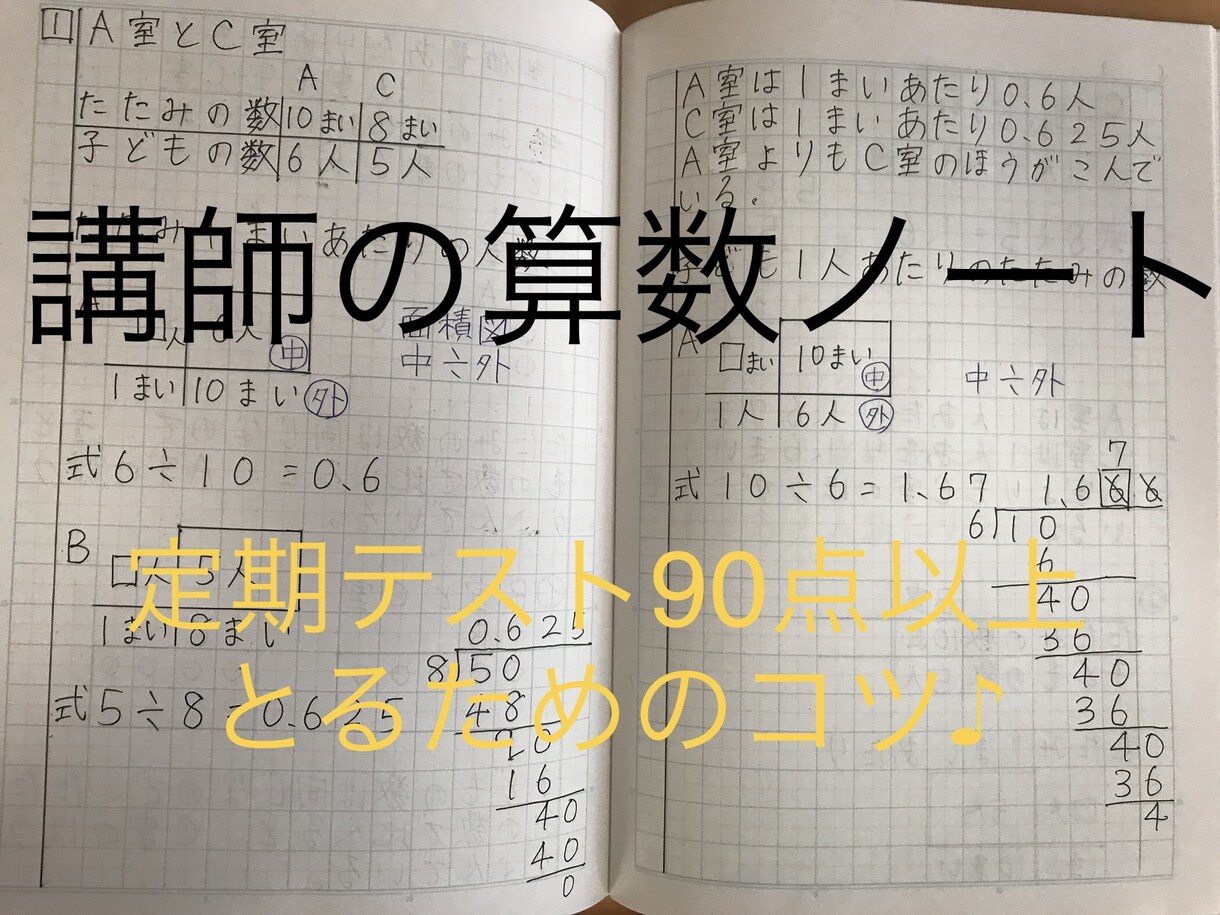 1 A室とC室
A C
たたみの数 10まい 8まい
子どもの数 6人 5人
講師の算数ノート
たたみ1まいあたりの人数
人 6人 中
1まい 10まい 外
面積図
中÷外
式 6÷10=0.6
B
□人 5人
1まい 8まい
式 5÷8=0.625
0.625
8)50
48
20
16
40
40
0
A室は1まいあたり0.6人
C室は1まいあたり0.625人
A室よりもC室のほうがこんで
いる.
子ども1人あたりのたたみの数
A
□まい 10まい 中
1人 6人 外
中÷外
式 10÷6=1.67
7
1.666
6)10
6
40
36
40
36
40
36
4
定期テスト90点以上
とるためのコツ♪